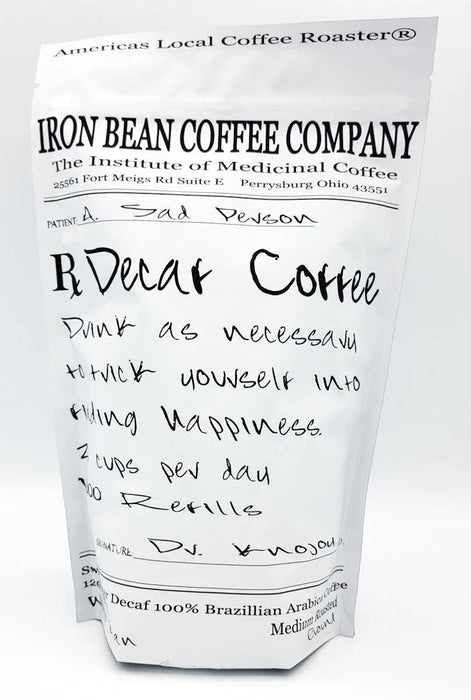 Americas Local Coffee Roaster®
IRON BEAN COFFEE COMPANY
The Institute of Medicinal Coffee
25561 Fort Meigs Rd Suite E Perrysburg Ohio 43551
PATIENT: A. Sad Person
Rx Decaf Coffee
Drink as necessary
to trick yourself into
finding happiness.
2 cups per day
Refills
SIGNATURE Dr. Knojou
Decaf 100% Brazillian Arabica Coffee
Medium Roasted
Ground